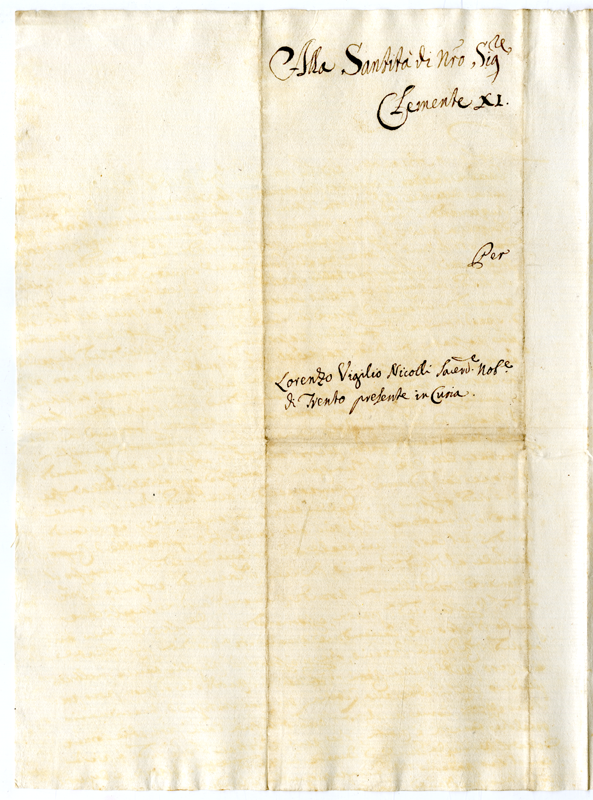 Alla Santità di Nrõ Sig.re
Clemente XI.
Per
Lorenzo Vigilio Nicolli Sacerd.e Nob.e
di Trento presente in Curia.